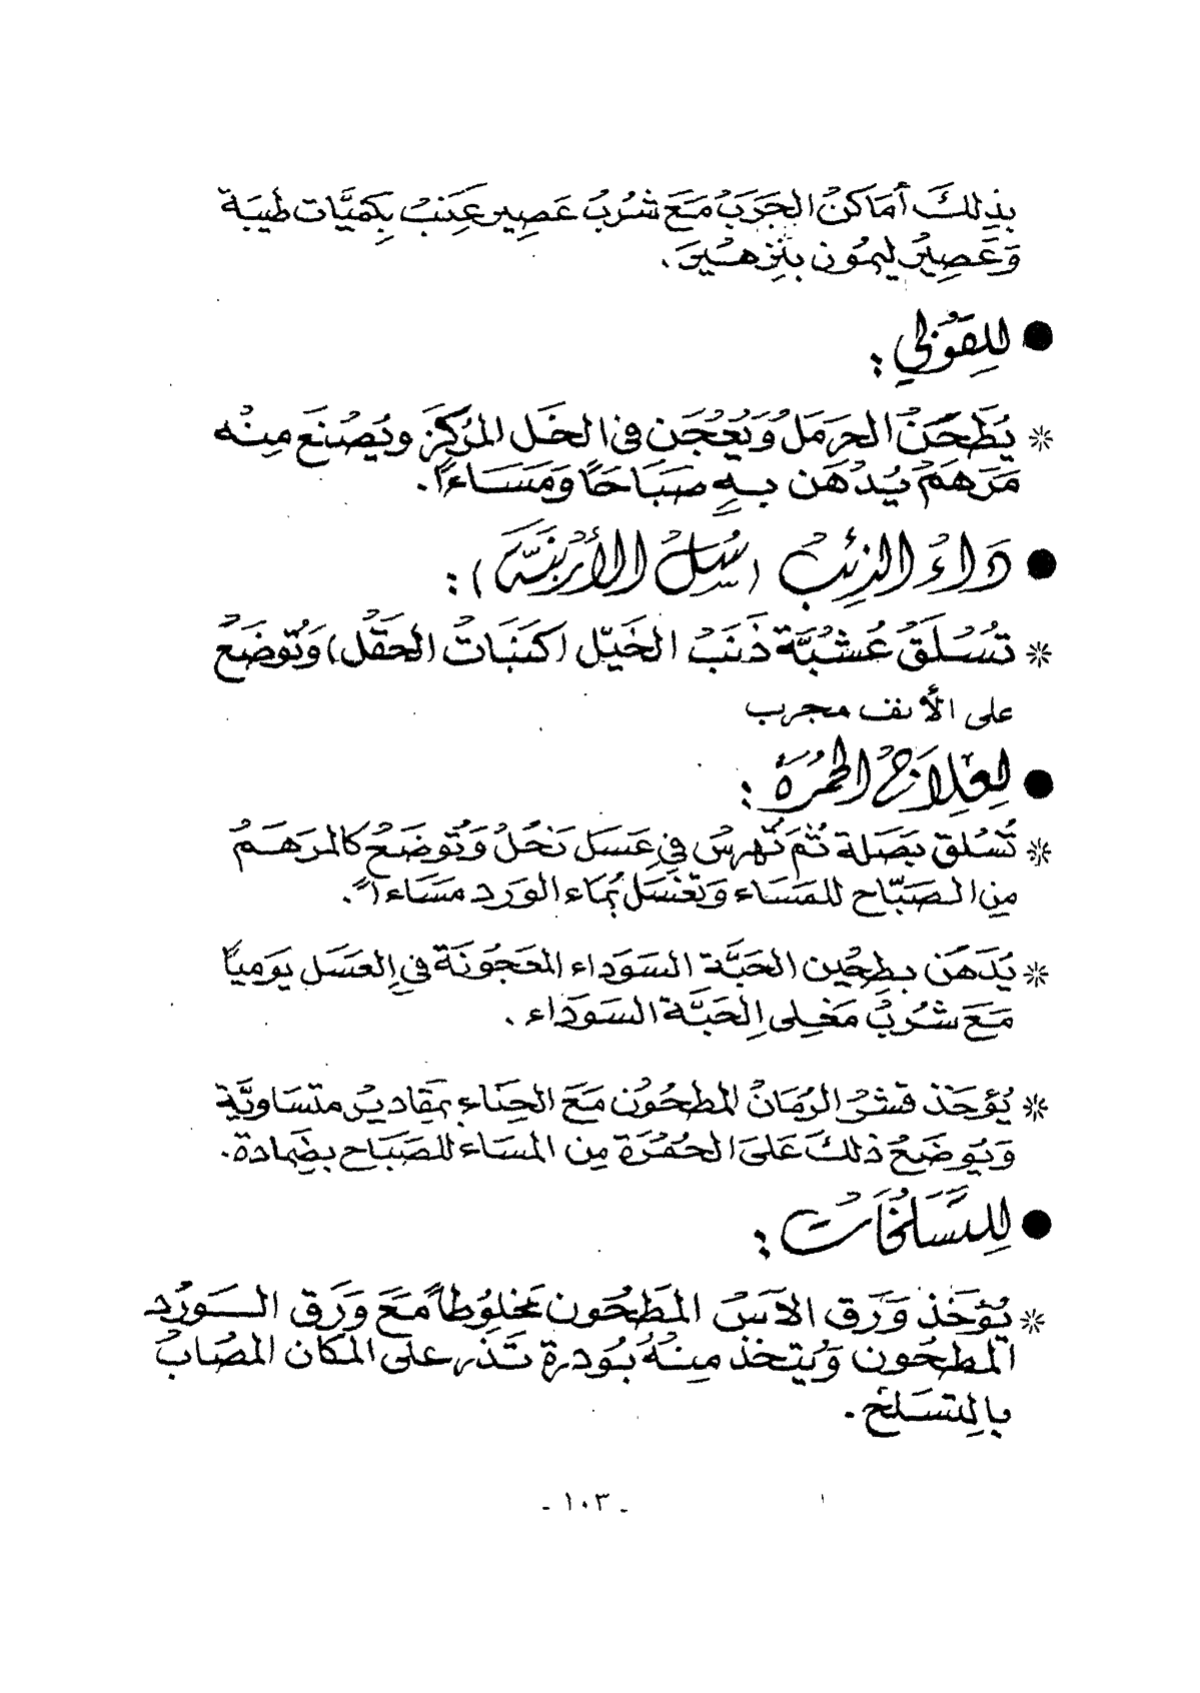 بذلك أماكن الجرب مع شرب عصير عنب بكميَّات طيبة
وعصير ليمون بنزهير.
● للقوبي :
* يُطحن الحرمل ويُعجن في الخل المركز ويُصنع منه
مرهم يُدهن به صباحاً ومساءاً.
● داء الذئب (سل الأرنبة) :
* تُسلق عُشبَّة ذنب الخيّل (كنبات الحقل) وتُوضع
على الأنف مجرب
● لعلاج الحمرة :
* تُسلق بصلة ثم تهرس في عسل نحل وتُوضع كالمرهم
من الصبّاح للمساء وتغسل بماء الورد مساءاً.
* يدهن بطحين الحبَّة السوداء المعجونة في العسل يومياً
مع شرب مغلى الحبَّة السوداء.
* يُؤخذ قشر الرمان المطحون مع الحناء بمقادير متساويَّة
ويُوضع ذلك على الحُمرة من المساء للصباح بضمادة.
● للتسلخات :
* يُؤخذ ورق الآس المطحون مخلوطاً مع ورق الورد
المطحون ويُتخذ منه بُودرة تذر على المكان المصاب
بالتسلخ.
- ١٠٣ -